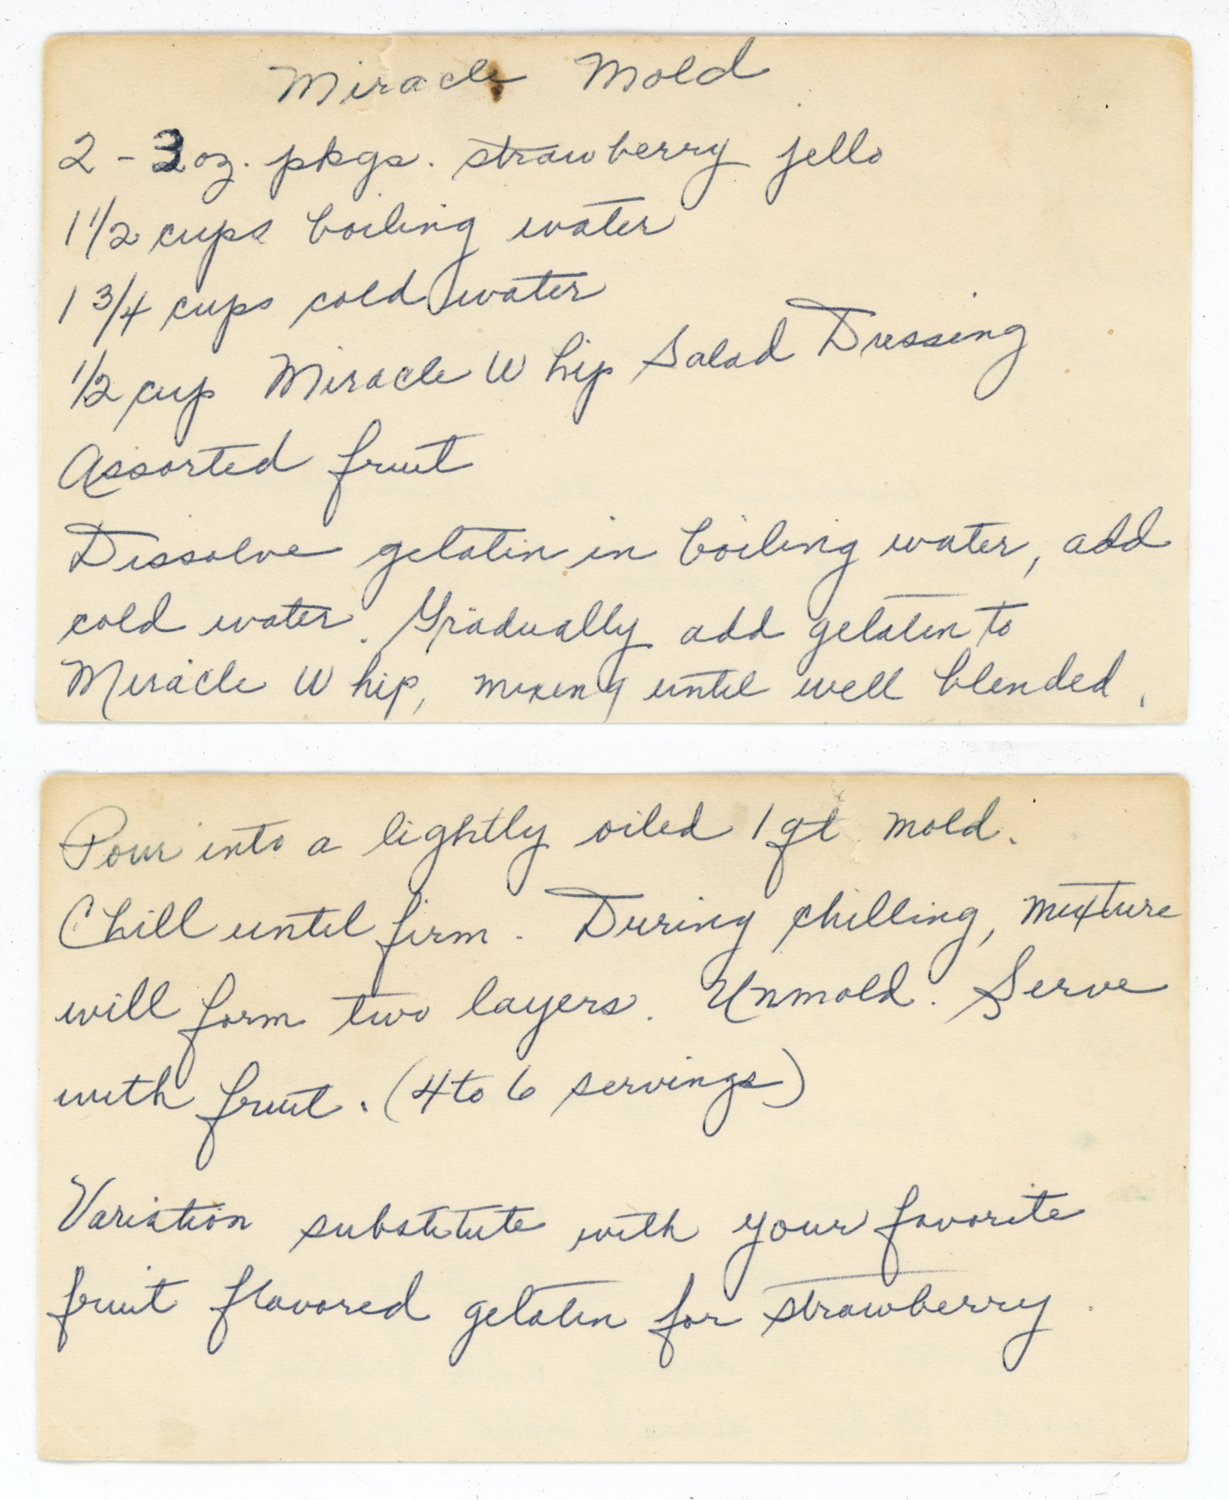 Miracle Mold
2 - 3 oz. pkgs. strawberry jello
1 1/2 cups boiling water
1 3/4 cups cold water
1/2 cup Miracle Whip Salad Dressing
Assorted fruit
Dissolve gelatin in boiling water, add
cold water. Gradually add gelatin to
Miracle Whip, mixing until well blended.
Pour into a lightly oiled 1 qt mold.
Chill until firm. During chilling, mixture
will form two layers. Unmold. Serve
with fruit. (4 to 6 servings)
Variation substitute with your favorite
fruit flavored gelatin for strawberry.